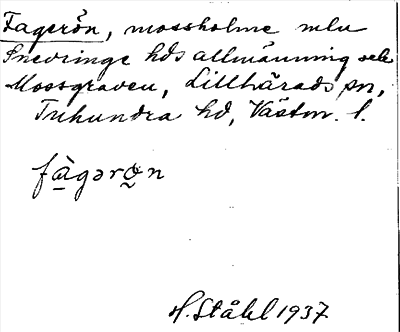 Fagerön, mossholme mlu
Snevringe hds allmänning och
Mossgraven, Lillhärads sn,
Tuhundra hd, Västm. l.
fàgərön
H. Ståhl 1937